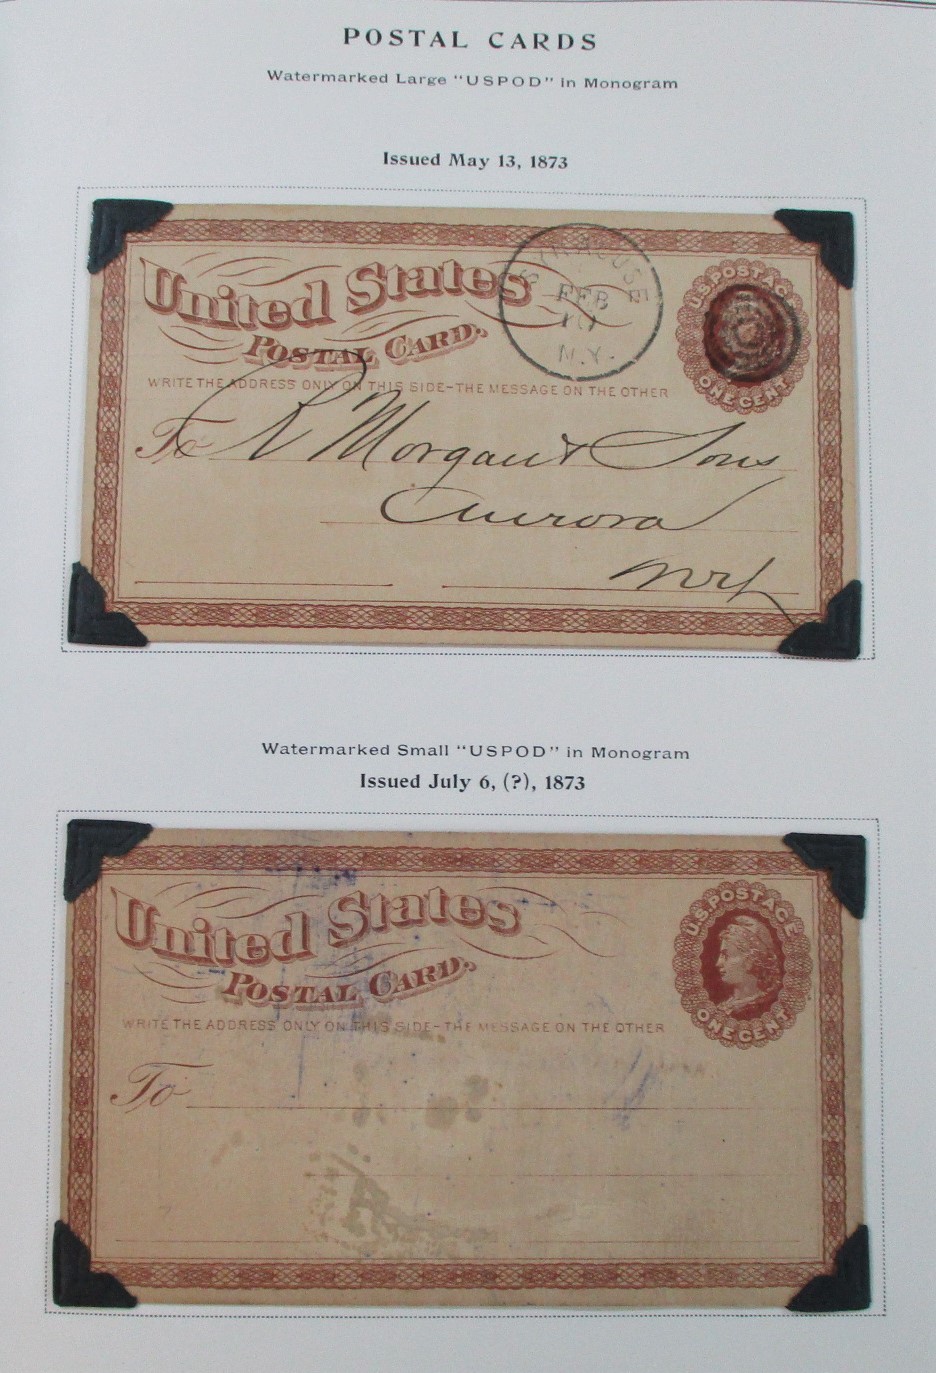 POSTAL CARDS
Watermarked Large "USPOD" in Monogram
Issued May 13, 1873
United States
POSTAL CARD.
SYRACUSE
FEB
10
N.Y.
U.S. POSTAGE
ONE CENT
WRITE THE ADDRESS ONLY ON THIS SIDE–THE MESSAGE ON THE OTHER
To R Morgan & Sons
Aurora
NY
Watermarked Small "USPOD" in Monogram
Issued July 6, (?), 1873
United States
POSTAL CARD.
U.S. POSTAGE
ONE CENT
WRITE THE ADDRESS ONLY ON THIS SIDE–THE MESSAGE ON THE OTHER
To